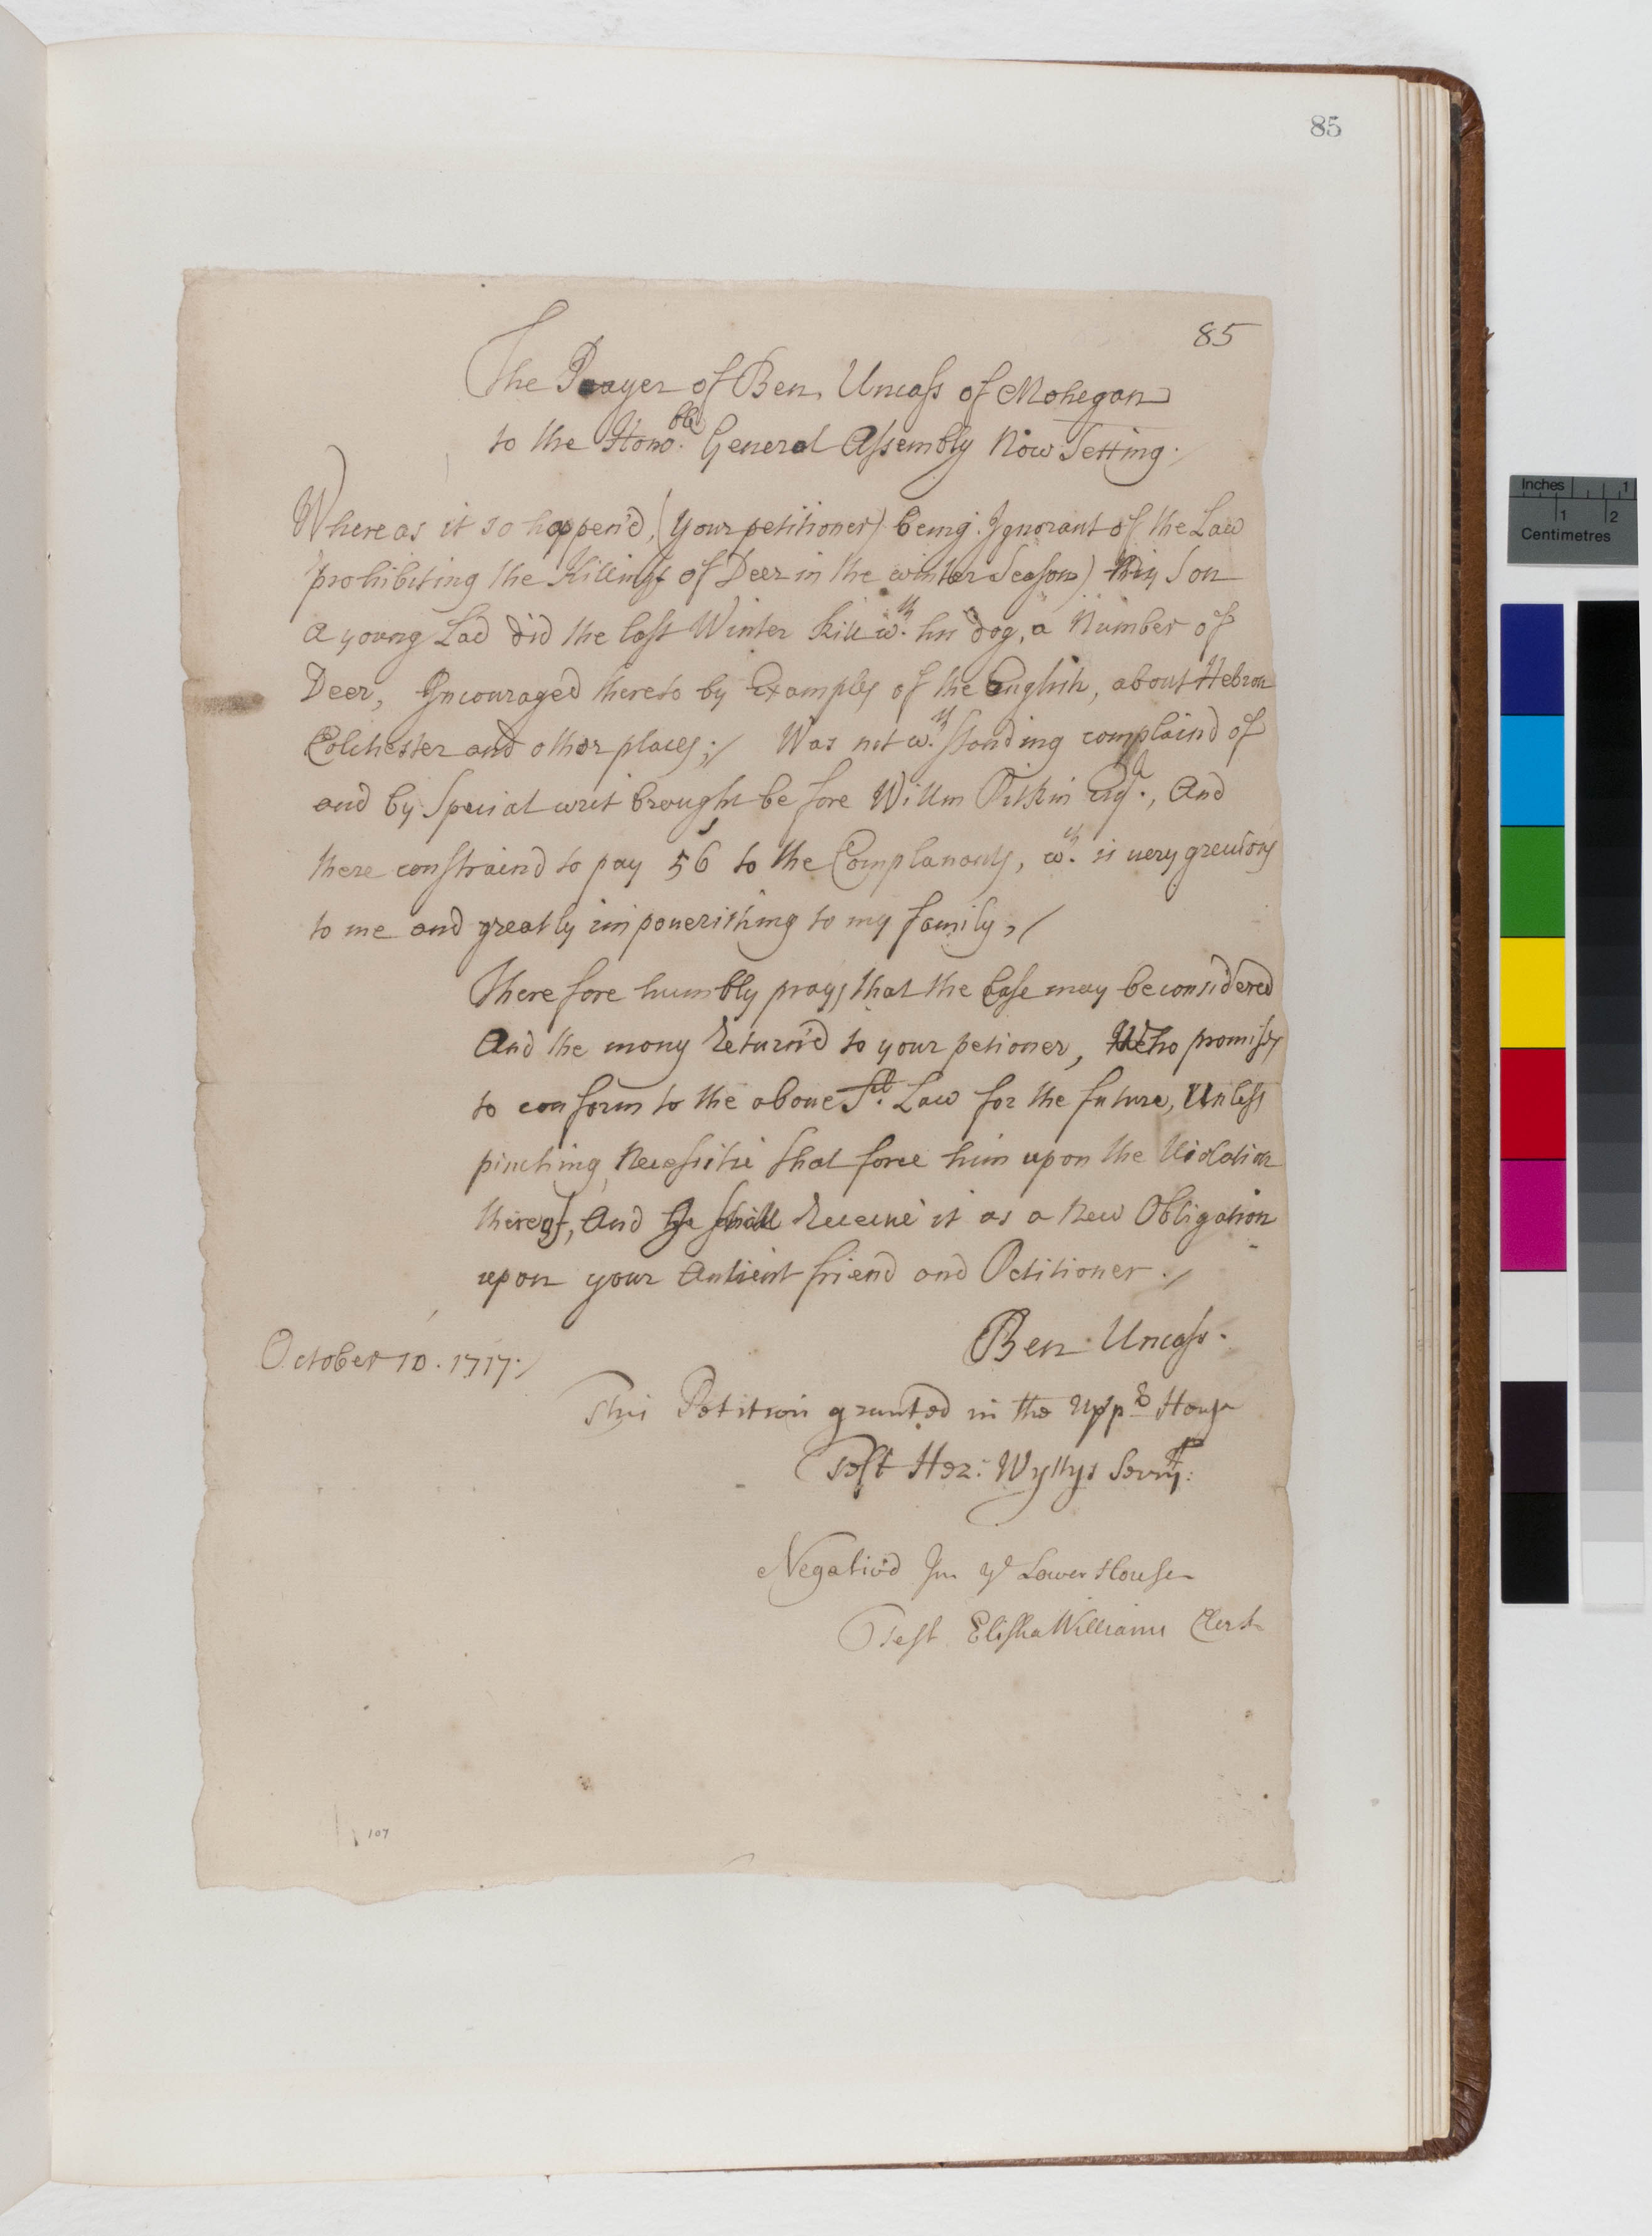 85
85
The Prayer of Ben, Uncass of Mohegan
to the Hono.ble General Assembly Now Setting./
Where as it so happen'd, (Your petitioner) being Ignorant of the Law
prohibiting the Killing of Deer in the winter Season) my Son
a young Lad did the last Winter kill w.th his dog, a Number of
Deer, Incouraged thereto by Examples of the English, about Hebron
Colchester and other places;/ Was not w.th standing complaind of
and by Special writ brought before Willm Pitkin Esq.r, And
there constraind to pay 56s to the Complanants, w.ch is very greuious
to me and greatly impouerishing to my family,/
Therefore humbly prays that the Case may be considered
And the mony Return'd to your petioner, Who promises
to conform to the aboue s.d Law for the future, Unless
pinching Necessitie shal force him upon the Uiolation
thereof, And he shall Receiue it as a New Obligation
upon your Antient friend and Petitioner./
Ben Uncass.
October 10. 1717./
This Petition granted in the Uppr House
Test Hez: Wyllys Secry:
Negativ'd In ye Lower House
Test Elisha Williams Clerk
107
Inches 1
1 2
Centimetres